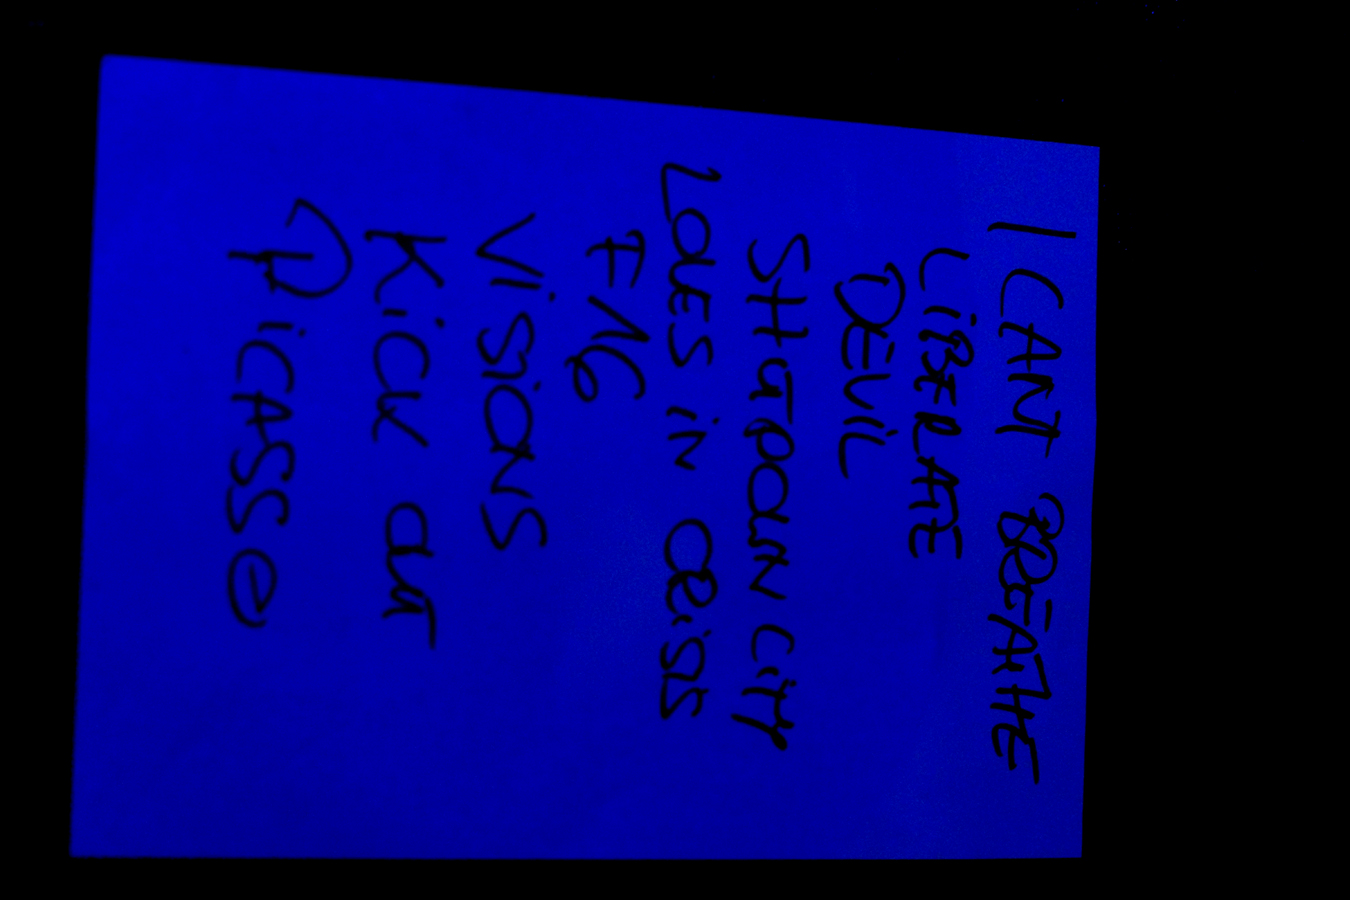 I CANT BREATHE
LiBERATE
DEViL
SHUTDOWN CiTY
LOVES iN CRiSiS
F N G
ViSiONS
KiCK OUT
PiCASSO